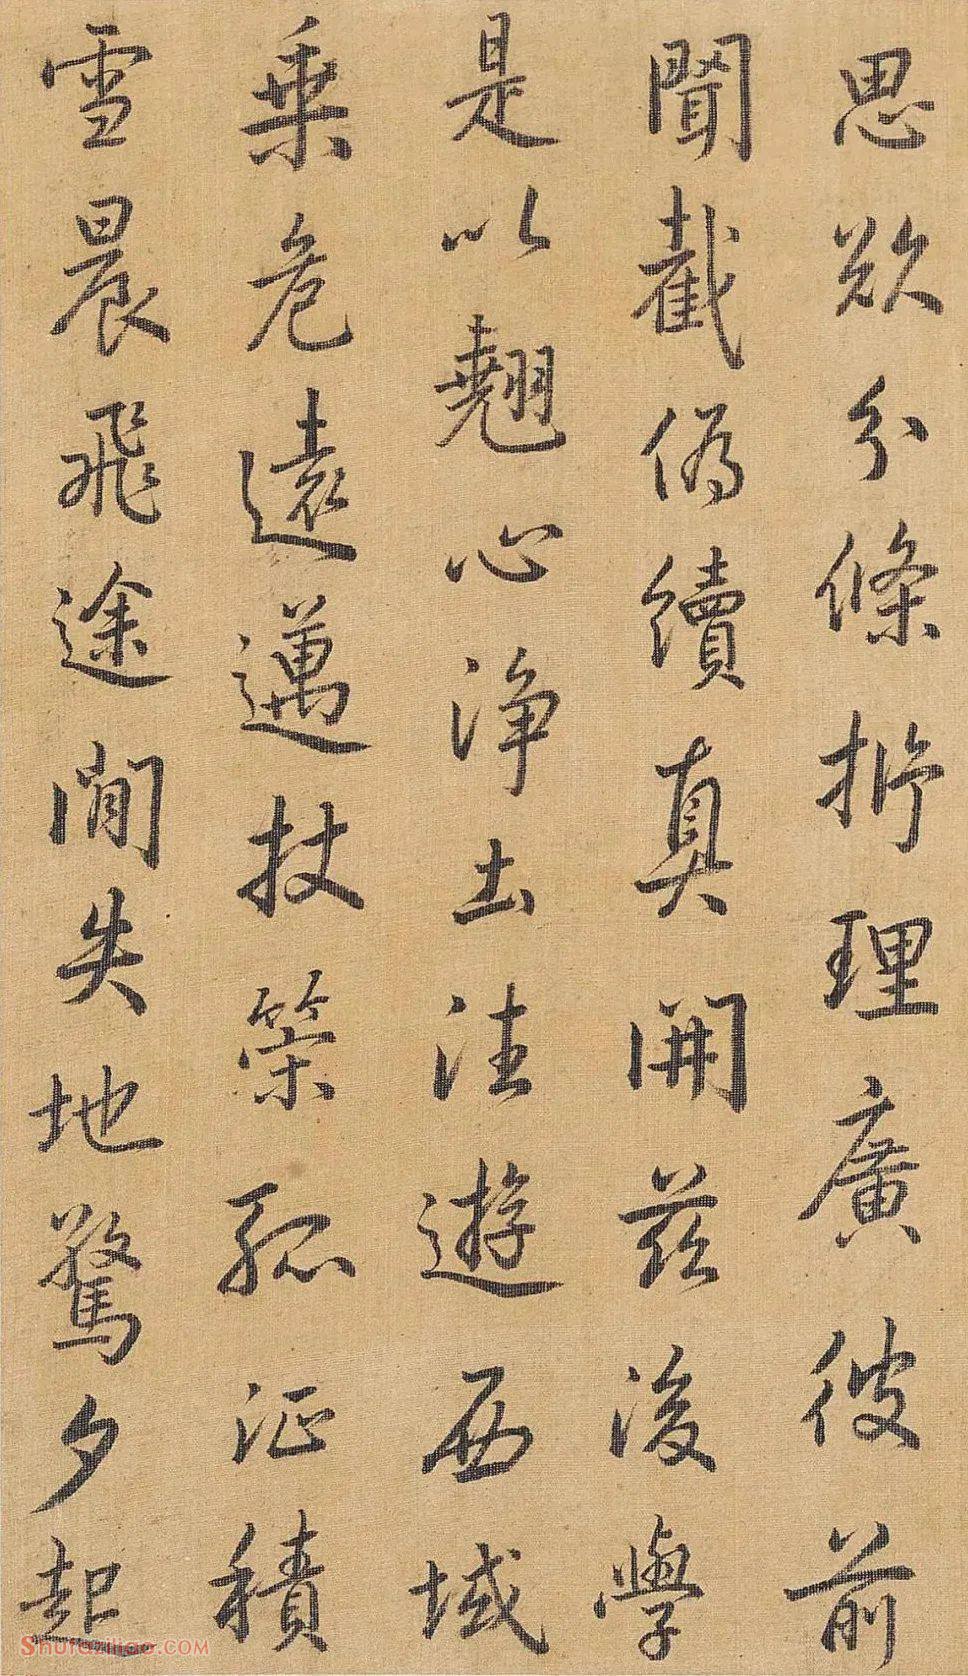 思欲分條析理廣彼前
聞截偽續真開茲後學
是以翹心淨土法遊西域
乗危遠邁杖策孤征積
雪晨飛途閒失地驚夕起
Shufaziliao.COM